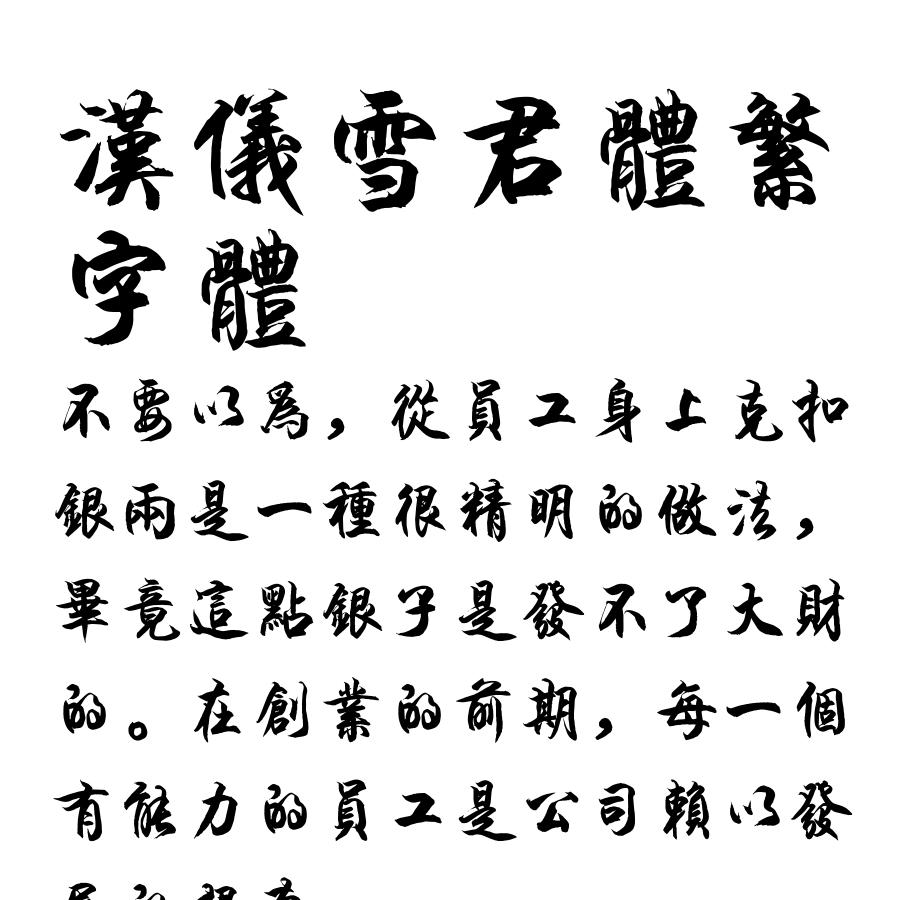 漢儀雪君體繁
字體
不要以為，從員工身上克扣
銀兩是一種很精明的做法，
畢竟這點銀子是發不了大財
的。在創業的前期，每一個
有能力的員工是公司賴以發